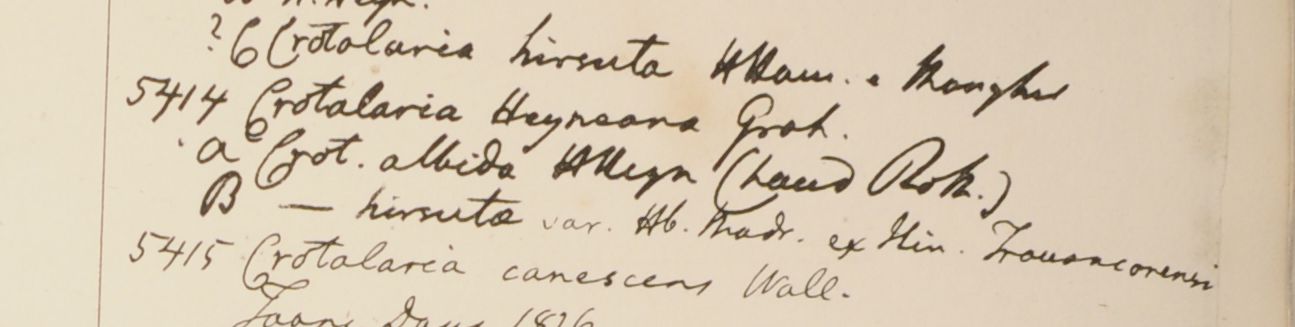 ? 6 Crotalaria hirsuta HHam. e Monghir
5414 Crotalaria Heyneana Grah.
a Crot. albida HHeyn (haud Rox.)
B — hirsuta var. Hb. Madr. ex Itin. Travancorensi
5415 Crotalaria canescens Wall.
Dong 1826